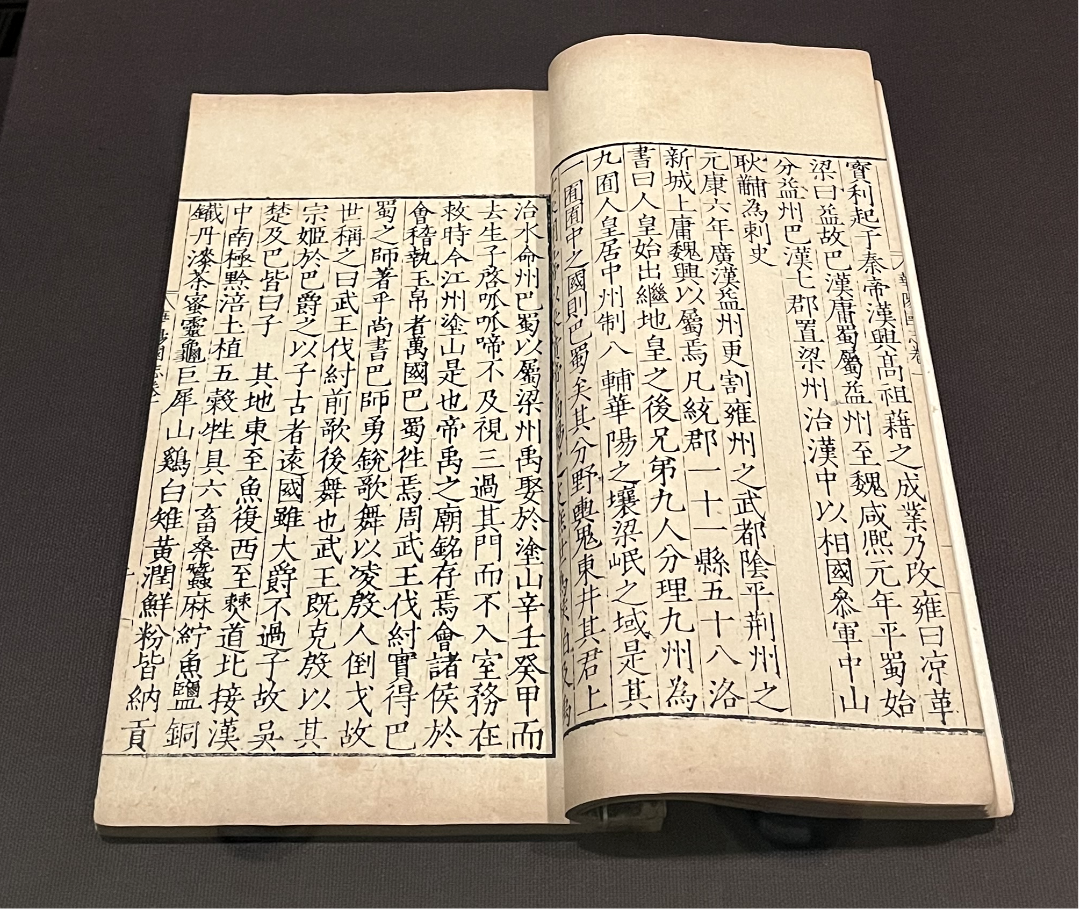 寶利起于秦帝漢興髙祖藉之成業乃攺雍曰凉革
梁曰益故巴漢庸蜀屬益州至魏咸熈元年平蜀始
分益州巴漢七郡置梁州治漢中以相國叅軍中山
耿黼為刺史
元康六年廣漢益州更割雍州之武都隂平荆州之
新城上庸魏興以屬焉凡統郡一十一縣五十八洛
書曰人皇始出繼地皇之後兄弟九人分理九州為
九囿人皇居中州制八輔華陽之壤梁岷之域是其
一囿囿中之國則巴蜀矣其分野輿鬼東井其君上
治水命州巴蜀以屬梁州禹娶於塗山辛壬癸甲而
去生子啓呱呱啼不及視三過其門而不入室務在
救時今江州塗山是也帝禹之廟銘存焉會諸侯於
會稽執玉帛者萬國巴蜀徃焉周武王伐紂實得巴
蜀之師著乎尚書巴師勇銳歌舞以凌殷人倒戈故
世稱之曰武王伐紂前歌後舞也武王既克殷以其
宗姬於巴爵之以子古者逺國雖大爵不過子故吳
楚及巴皆曰子 其地東至魚復西至僰道北接漢
中南極黔涪土植五穀牲具六畜桑蠶麻紵魚鹽銅
鐵丹漆茶蜜靈龜巨犀山鷄白雉黃潤鮮粉皆納貢